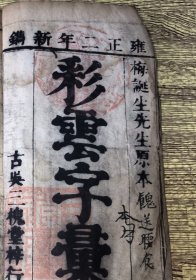 雍正二年新鐫
梅誕生先生原本
彩雲字彙
古吳三槐堂梓行